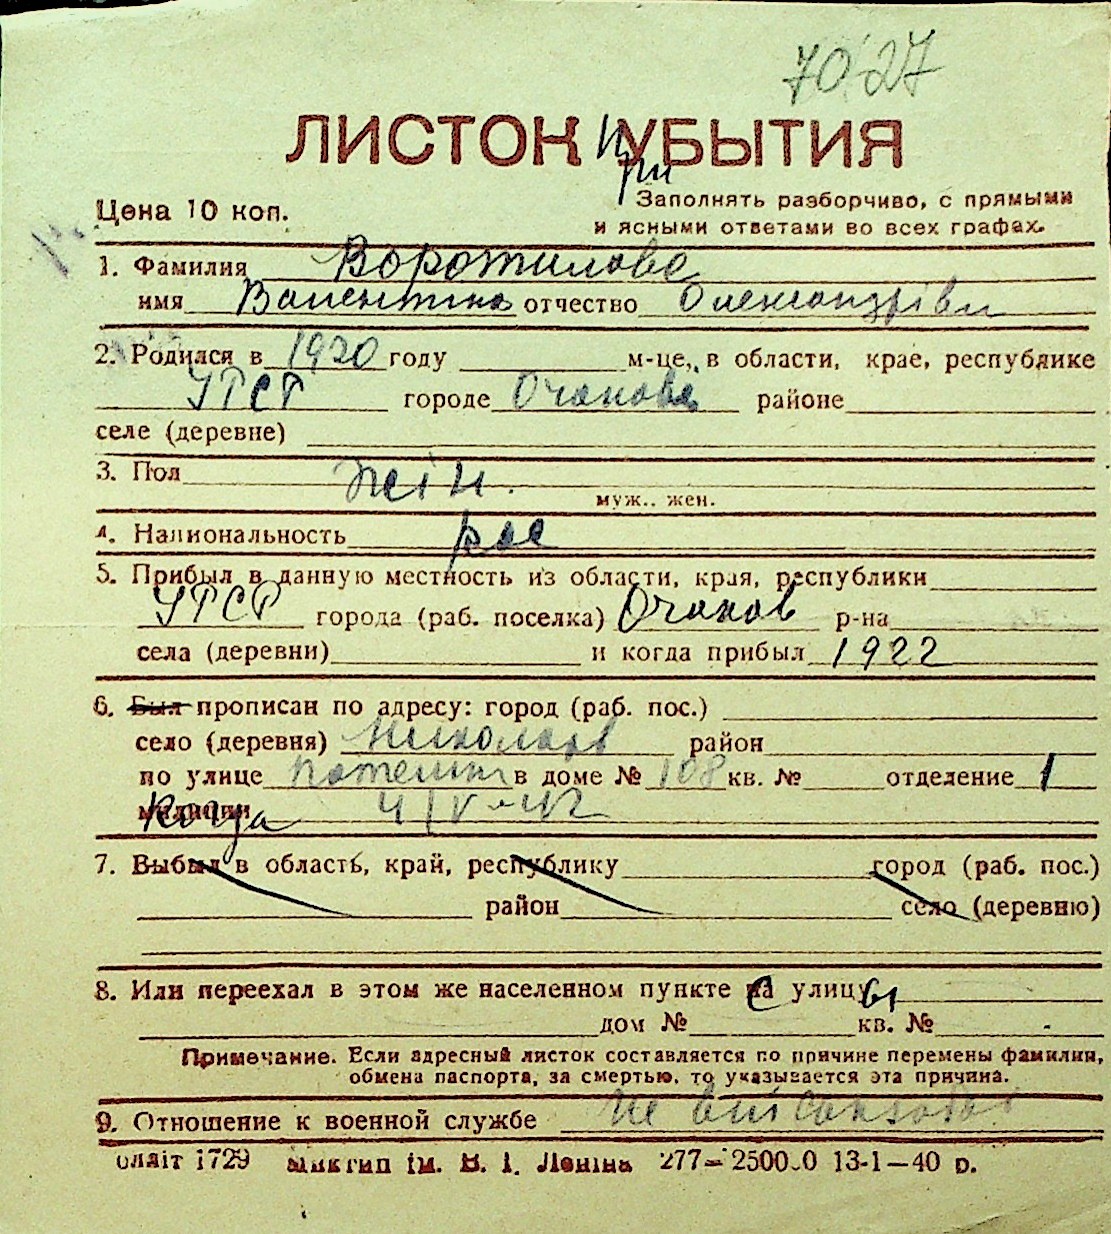 70 27
ЛИСТОК При УБЫТИЯ
Цена 10 коп.
Заполнять разборчиво, с прямыми
и ясными ответами во всех графах.
1. Фамилия Воротилова
имя Валентина отчество Олександрівн
2. Родился в 1920 году м-це, в области, крае, республике
УРСР городе Очакове районе
селе (деревне)
3. Пол жін.
муж.. жен.
4. Национальность рос
5. Прибыл в данную местность из области, края, республики
УРСР города (раб. поселка) Очаков р-на
села (деревни) и когда прибыл 1922
6. Был прописан по адресу: город (раб. пос.)
село (деревня) Миколаїв район
по улице в доме № 108 кв. № отделение 1
милиции Когда 4/V-42
7. Выбыл в область, край, республику город (раб. пос.)
район село (деревню)
8. Или переехал в этом же населенном пункте с улицы
дом № кв. №
Примечание. Если адресный листок составляется по причине перемены фамилии,
обмена паспорта, за смертью, то указывается эта причина.
9. Отношение к военной службе не
блліт 1729 ім. В. І. Леніна 277— 13-1—40 р.